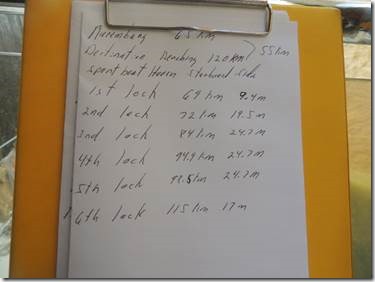 Nuremburg 65 km
Destination Bamburg 120km } 55km
sport boat Haven Starboard side
1st lock 69km 9.4m
2nd lock 72km 19.5m
3nd lock 84km 24.7m
4th lock 94.9km 24.7m
5th lock 98.5km 24.7m
6th lock 115km 17m